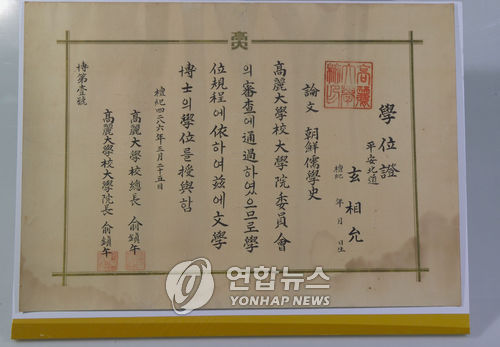 學位證
平安北道
玄相允
檀紀 年 月 日生
論文 朝鮮儒學史
高麗大學校大學院委員會
의審査에通過하였으므로學
位規程에依하여玆에文學
博士의學位를授與함
檀紀四二八六年三月二十五日
高麗大學校總長 兪鎭午
高麗大學校大學院長 兪鎭午
博第壹號
연합뉴스
YONHAP NEWS